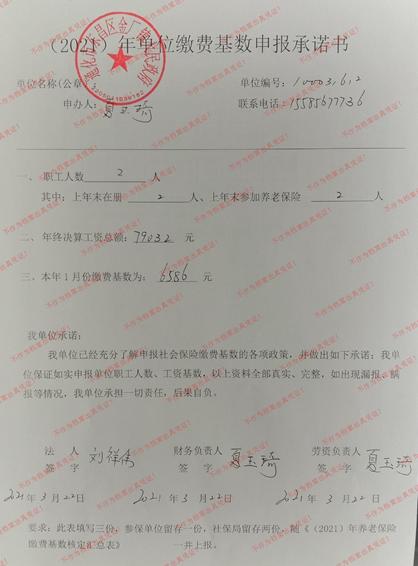 （2021）年单位缴费基数申报承诺书
单位名称(公章 单位编号：100031612
申办人：夏玉琦 联系电话：15585677736
一、 职工人数 2 人
其中：上年末在册 2 人、上年末参加养老保险 2 人
二、 年终决算工资总额：79032 元
三、本年 1 月份缴费基数为： 6586 元
我单位承诺：
我单位已经充分了解申报社会保险缴费基数的各项政策，并做出如下承诺：我单
位保证如实申报单位职工人数、工资基数，以上资料全部真实、完整，如出现漏报、瞒
报等情况，我单位承担一切责任，后果自负。
法 人 财务负责人 劳资负责人
签 字 刘祥 签 字 夏玉琦 签 字 夏玉琦
2021年 3 月 22日 2021 年 3 月 22日 2021 年 3 月 22日
要求：此表填写三份，参保单位留存一份，社保局留存两份，随《（2021）年养老保险
缴费基数核定汇总表》 一并上报。
不作为档案出具凭证！